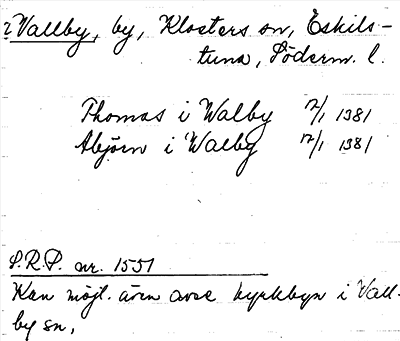 ? Vallby, by, Klosters sn, Eskils-
tuna, Söderm. l.
Thomas i Walby 12/1 1381
Abjörn i Walby 12/1 1381
S.R.P. nr. 1551
Kan möjl. även avse kyrkbyn i Vall-
by sn.